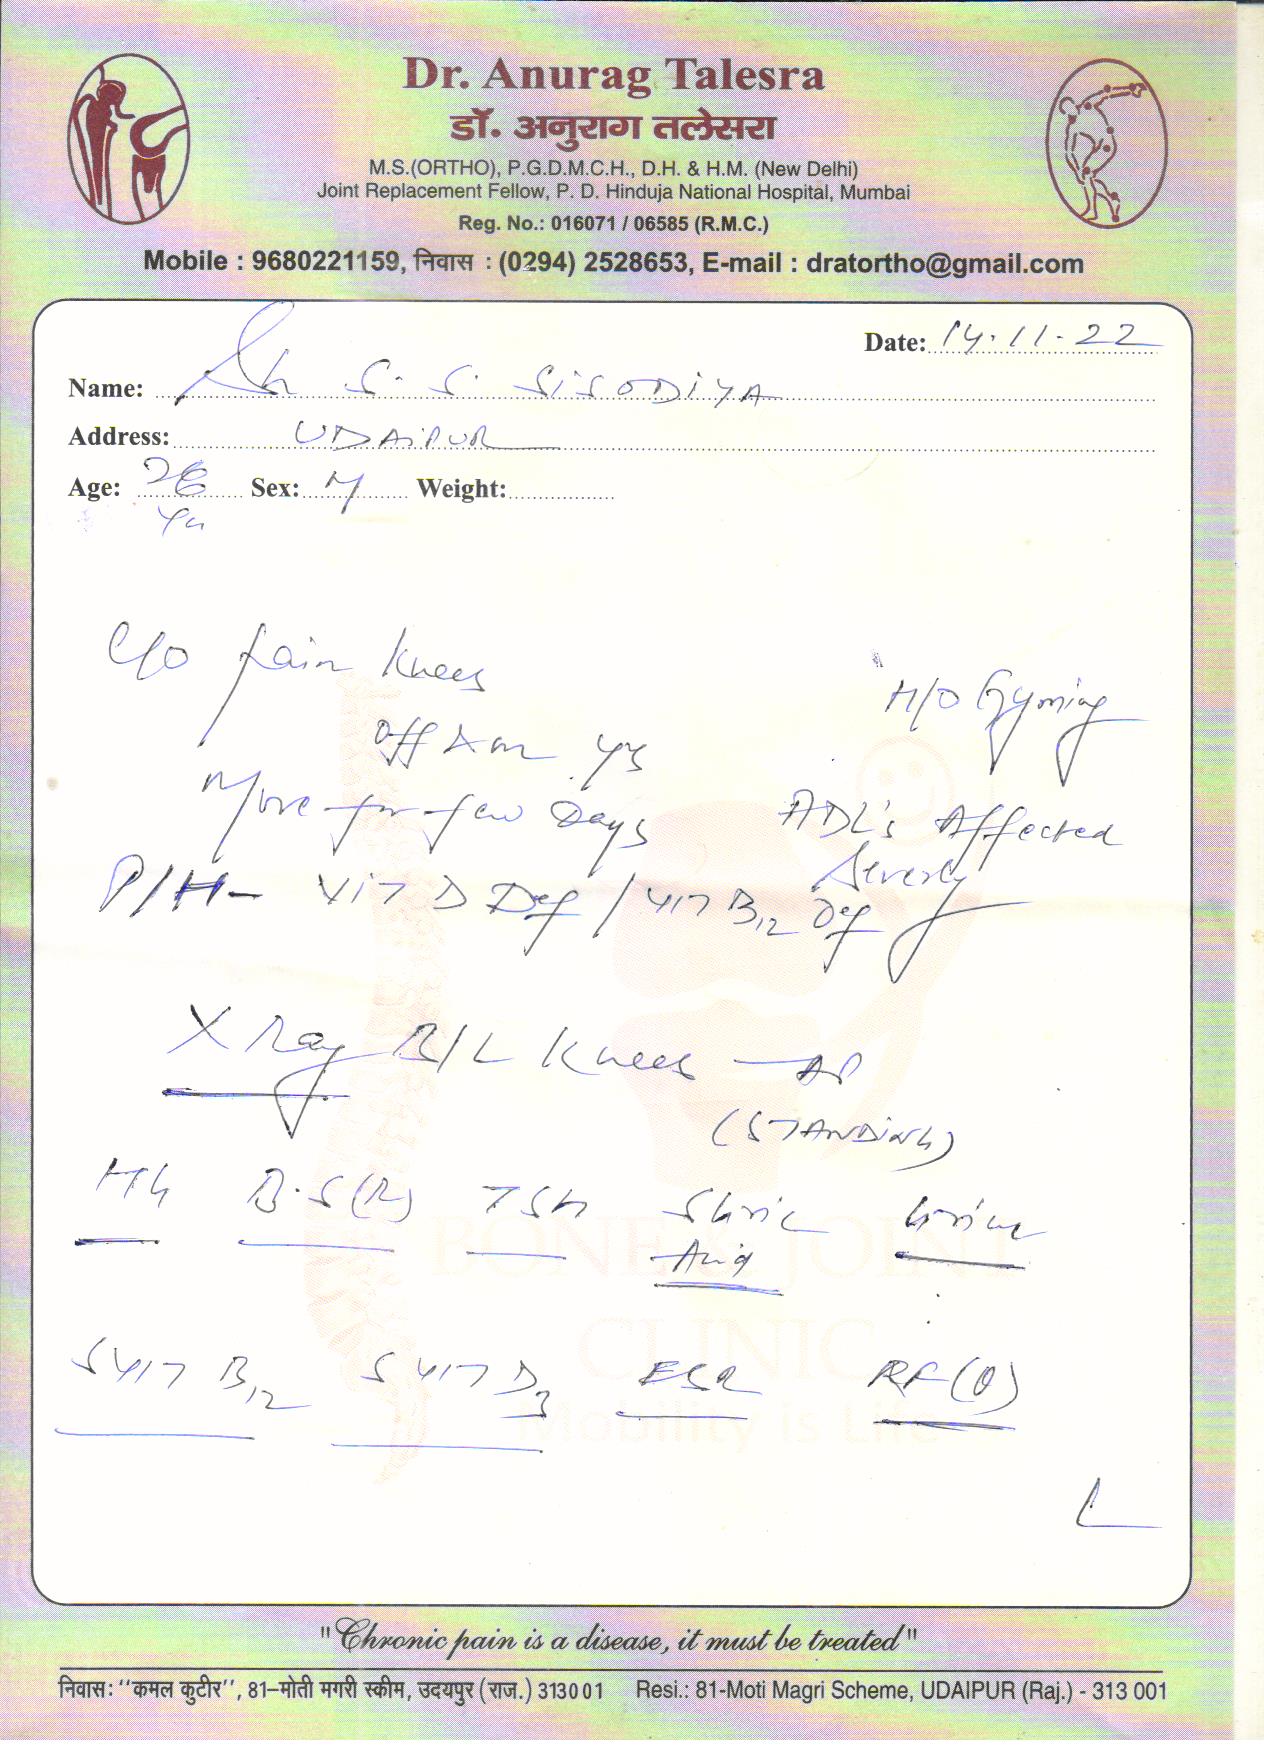 Dr. Anurag Talesra
डॉ. अनुराग तलेसरा
M.S.(ORTHO), P.G.D.M.C.H., D.H. & H.M. (New Delhi)
Joint Replacement Fellow, P. D. Hinduja National Hospital, Mumbai
Reg. No.: 016071 / 06585 (R.M.C.)
Mobile : 9680221159, निवास : (0294) 2528653, E-mail : dratortho@gmail.com
Date: 14.11.22
Name: Sh S. S. SISODIYA
Address: UDAIPUR
Age: Sex: M Weight:
C/O Pain Knees
H/O Gyming
Off & on yrs
More for few Days
ADL's Affected
Severly
P/H- VIT D Def / VIT B12 Def
X Ray R/L Knees - AP
(STANDING)
Hb B.S(R) TSH S. Uric Urine
Acid
BONE & JOINT
CLINIC
S VIT B12 S VIT D3 ESR RF(Q)
Mobility is Life
"Chronic pain is a disease, it must be treated"
निवास: "कमल कुटीर", 81-मोती मगरी स्कीम, उदयपुर (राज.) 313001 Resi.: 81-Moti Magri Scheme, UDAIPUR (Raj.) - 313 001